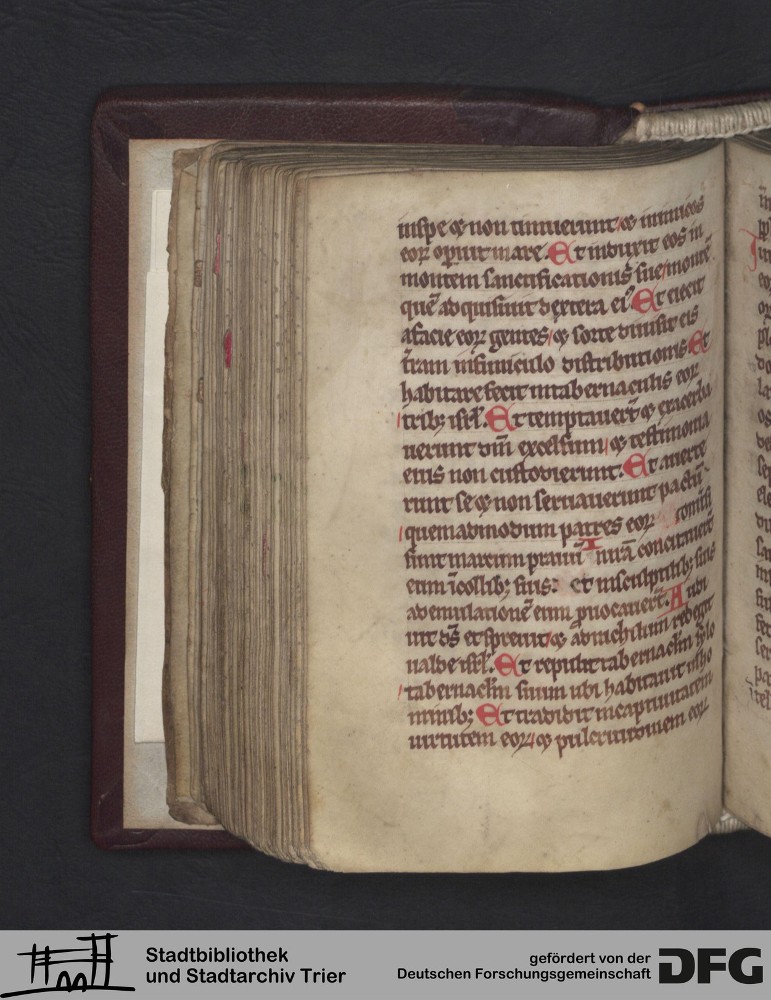 inspe & non timuerunt/& inimicos
eoꝝ oꝑuit mare. Et induxit eos in
montem sanctificationis sue/montē
quē adquisiuit dextera ei᾿. Et eiecit
afacie eoꝝ gentes/& sorte diuisit eis
t̄ram infuniculo distributionis. Et
habitare fecit intabernaculis eoꝝ
tribꝫ isrł. Et temptauer̄t & exacerba
uerunt dm̄ excelsum/& testimonia
eius non custodierunt. Et auerte
runt se & non seruauerunt pactū
quemadmodum patres eoꝝ conūsi
sunt inarcum prauū In irā concitauer̄t
eum īcollibꝫ suis: et insculptilibꝫ suis
ademulationē eum ꝓuocauer̄t. Audi
uit ds̄ et spreuit/& adnichilum redegit
ualde isrł. Et repulit tabernacłm sẏlo
tabernacłm suum ubi habitauit inho
minibꝫ Et tradidit incaptiuitatem
uirtutem eoꝝ/& pulcritudinem eoꝝ
Stadtbibliothek
und Stadtarchiv Trier
gefördert von der
Deutschen Forschungsgemeinschaft
DFG